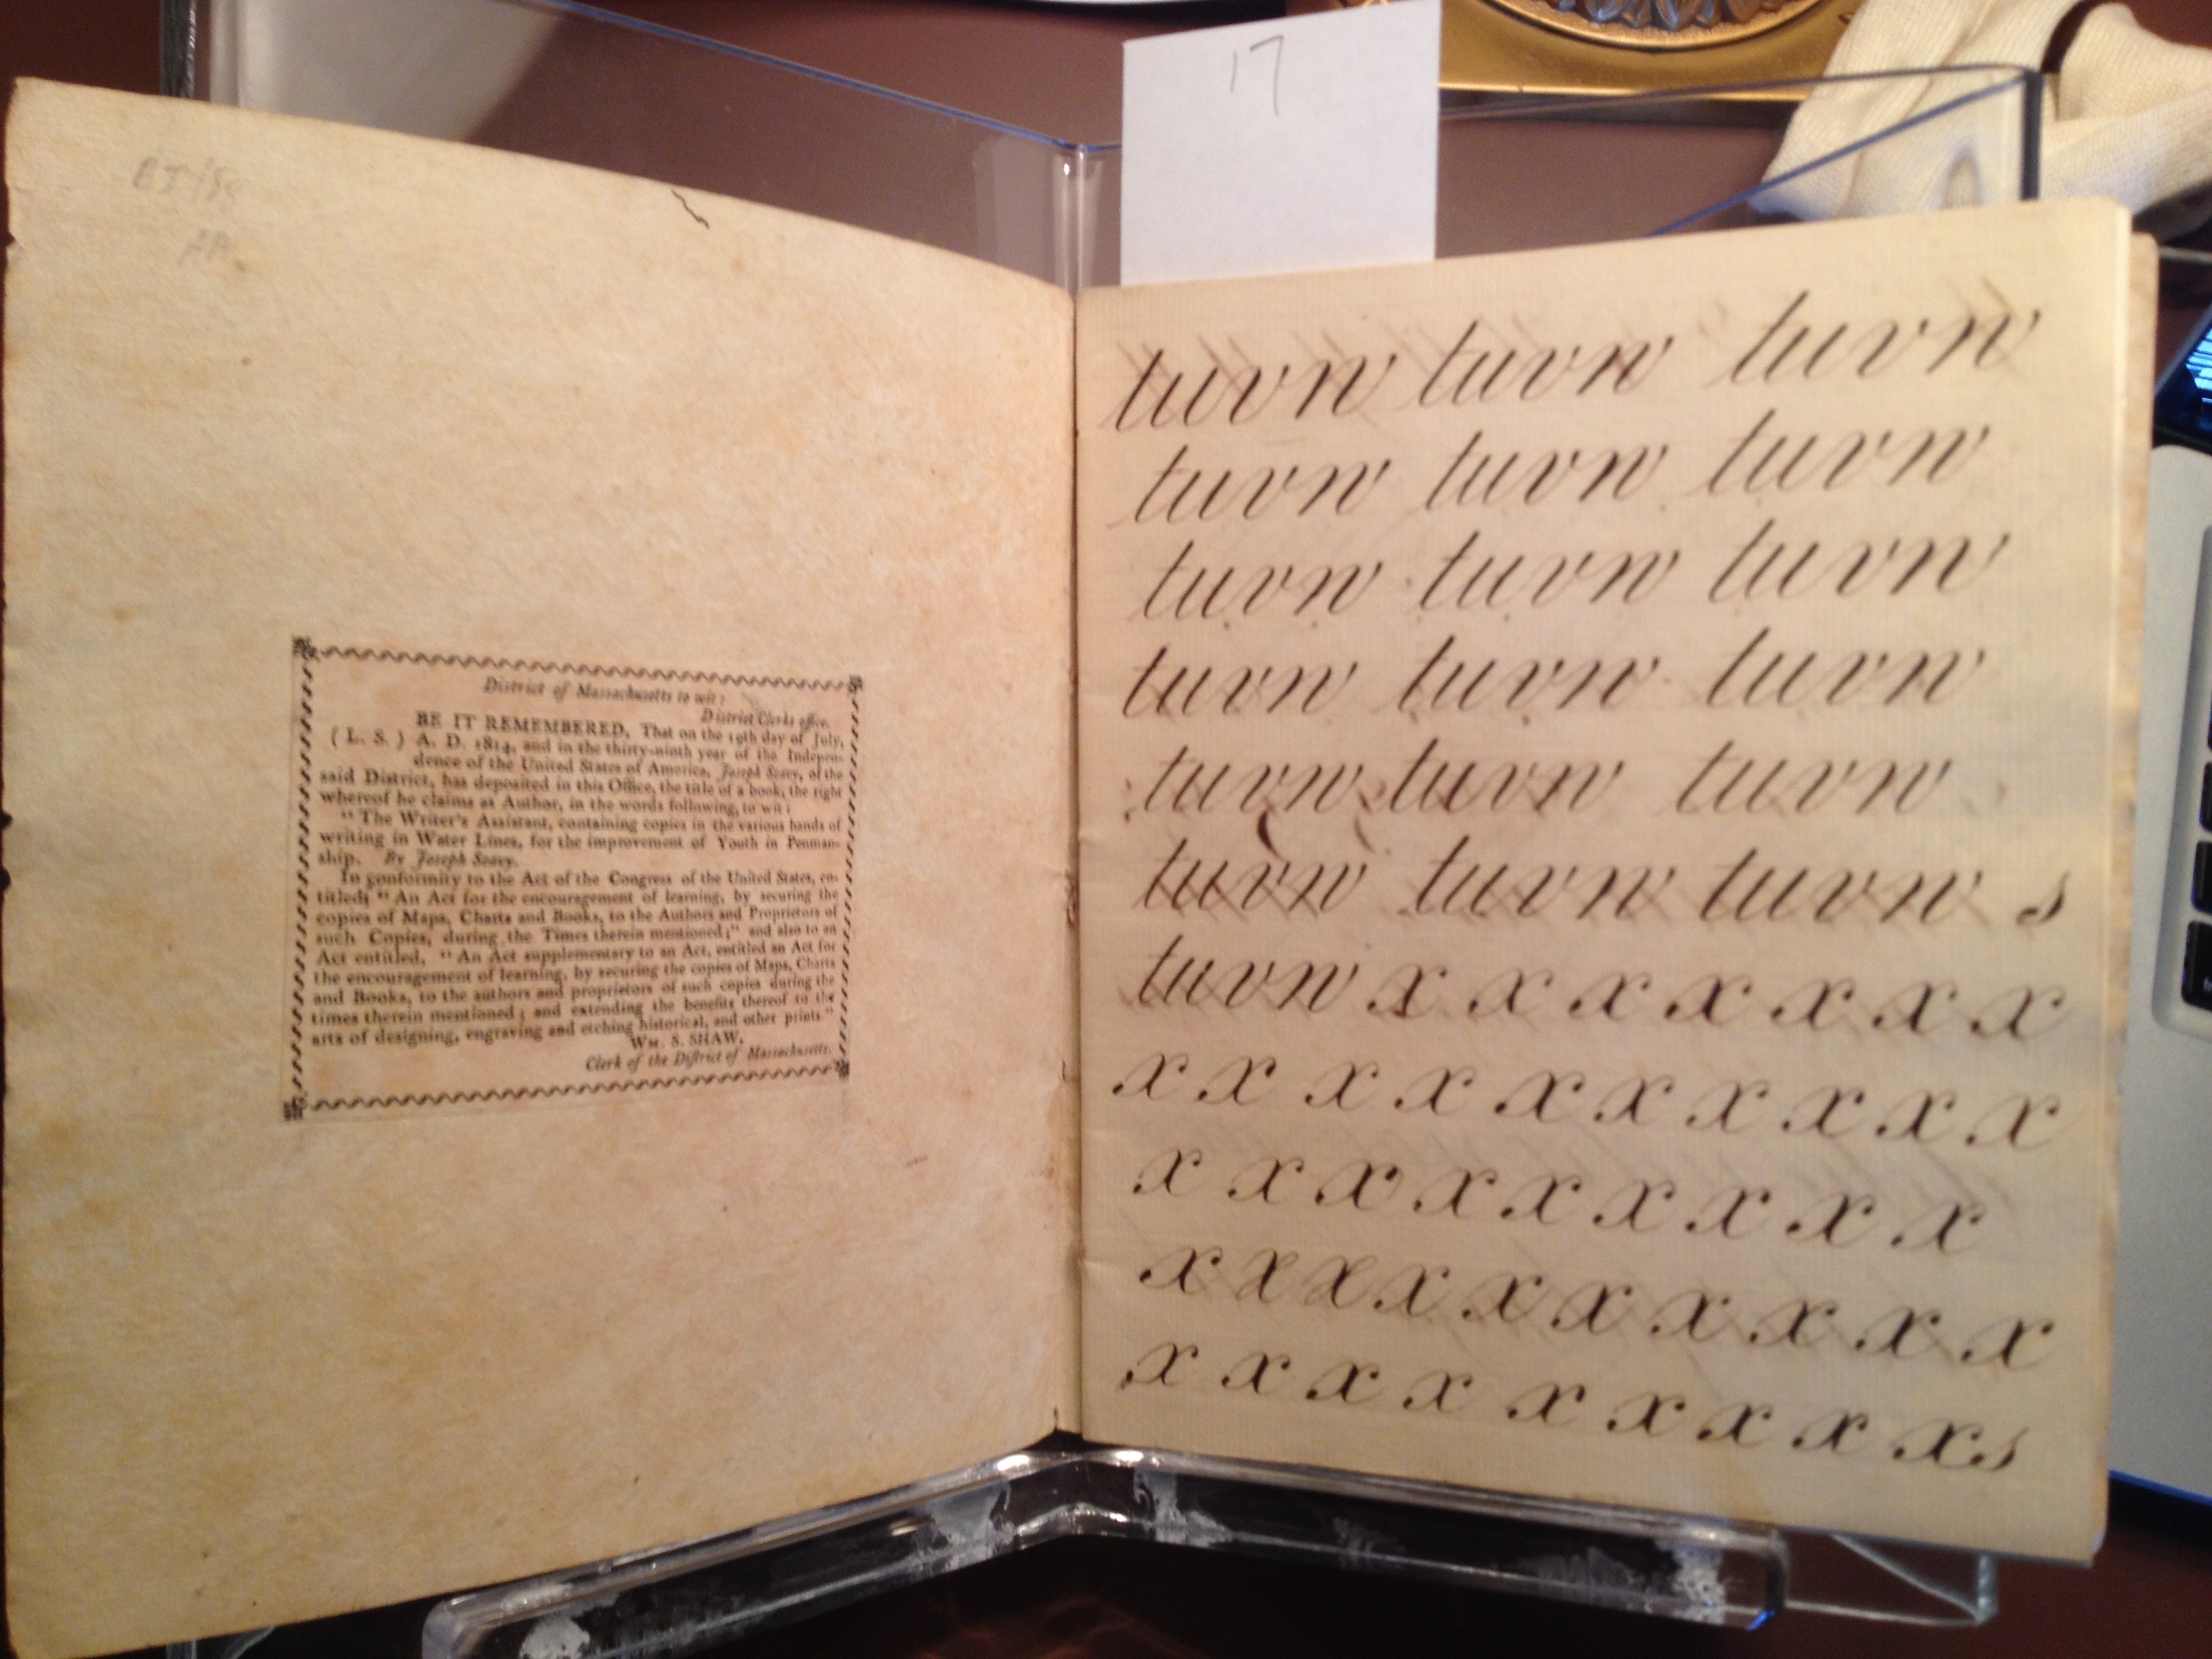 17
District of Massachusetts to wit:
District Clerks office.
BE IT REMEMBERED, That on the 19th day of July,
( L. S. ) A. D. 1814, and in the thirty-ninth year of the Indepen-
dence of the United States of America, Joseph Seavy, of the
said District, has deposited in this Office, the title of a book, the right
whereof he claims as Author, in the words following, to wit:
"The Writer's Assistant, containing copies in the various hands of
writing in Water Lines, for the improvement of Youth in Penman-
ship. By Joseph Seavy.
In conformity to the Act of the Congress of the United States, en-
titled; "An Act for the encouragement of learning, by securing the
copies of Maps, Charts and Books, to the Authors and Proprietors of
such Copies, during the Times therein mentioned;" and also to an
Act entitled, "An Act supplementary to an Act, entitled an Act for
the encouragement of learning, by securing the copies of Maps, Charts
and Books, to the authors and proprietors of such copies during the
times therein mentioned; and extending the benefits thereof to the
arts of designing, engraving and etching historical, and other prints."
WM. S. SHAW,
Clerk of the District of Massachusetts.
tuvw tuvw tuvw
tuvw tuvw tuvw
tuvw tuvw tuvw
tuvw tuvw tuvw
tuvw tuvw tuvw
tuvw tuvw tuvw s
tuvw x x x x x x x
x x x x x x x x x x
x x x x x x x x x
x x x x x x x x x x
x x x x x x x x x s